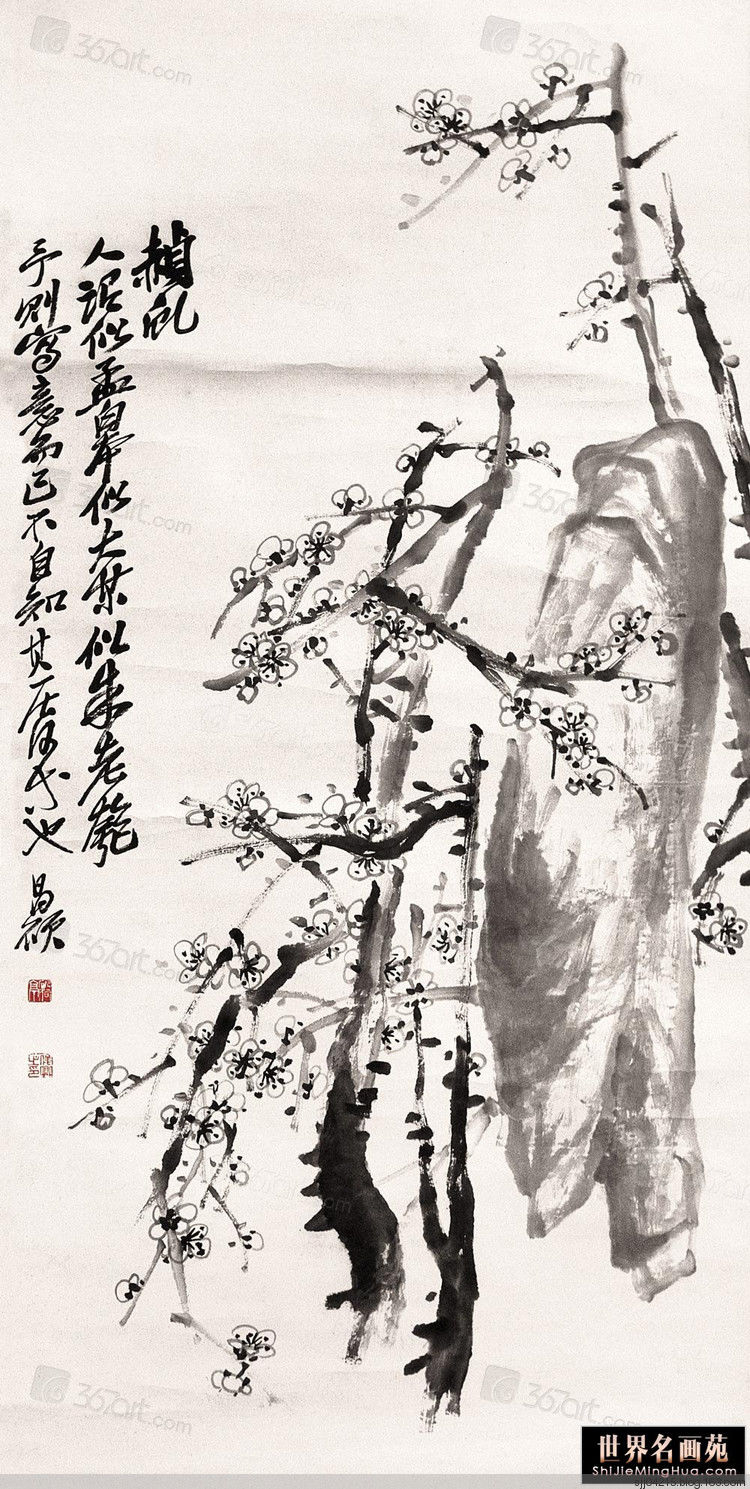 赬虬
人謂似孟皋似大某似朱老匏
予則寫意而已不自知其居何等也
昌碩
367art.com
367art.com
367art.com
367art.com
367art.com
367art.com
367art.com
世界名画苑
ShiJieMingHua.com